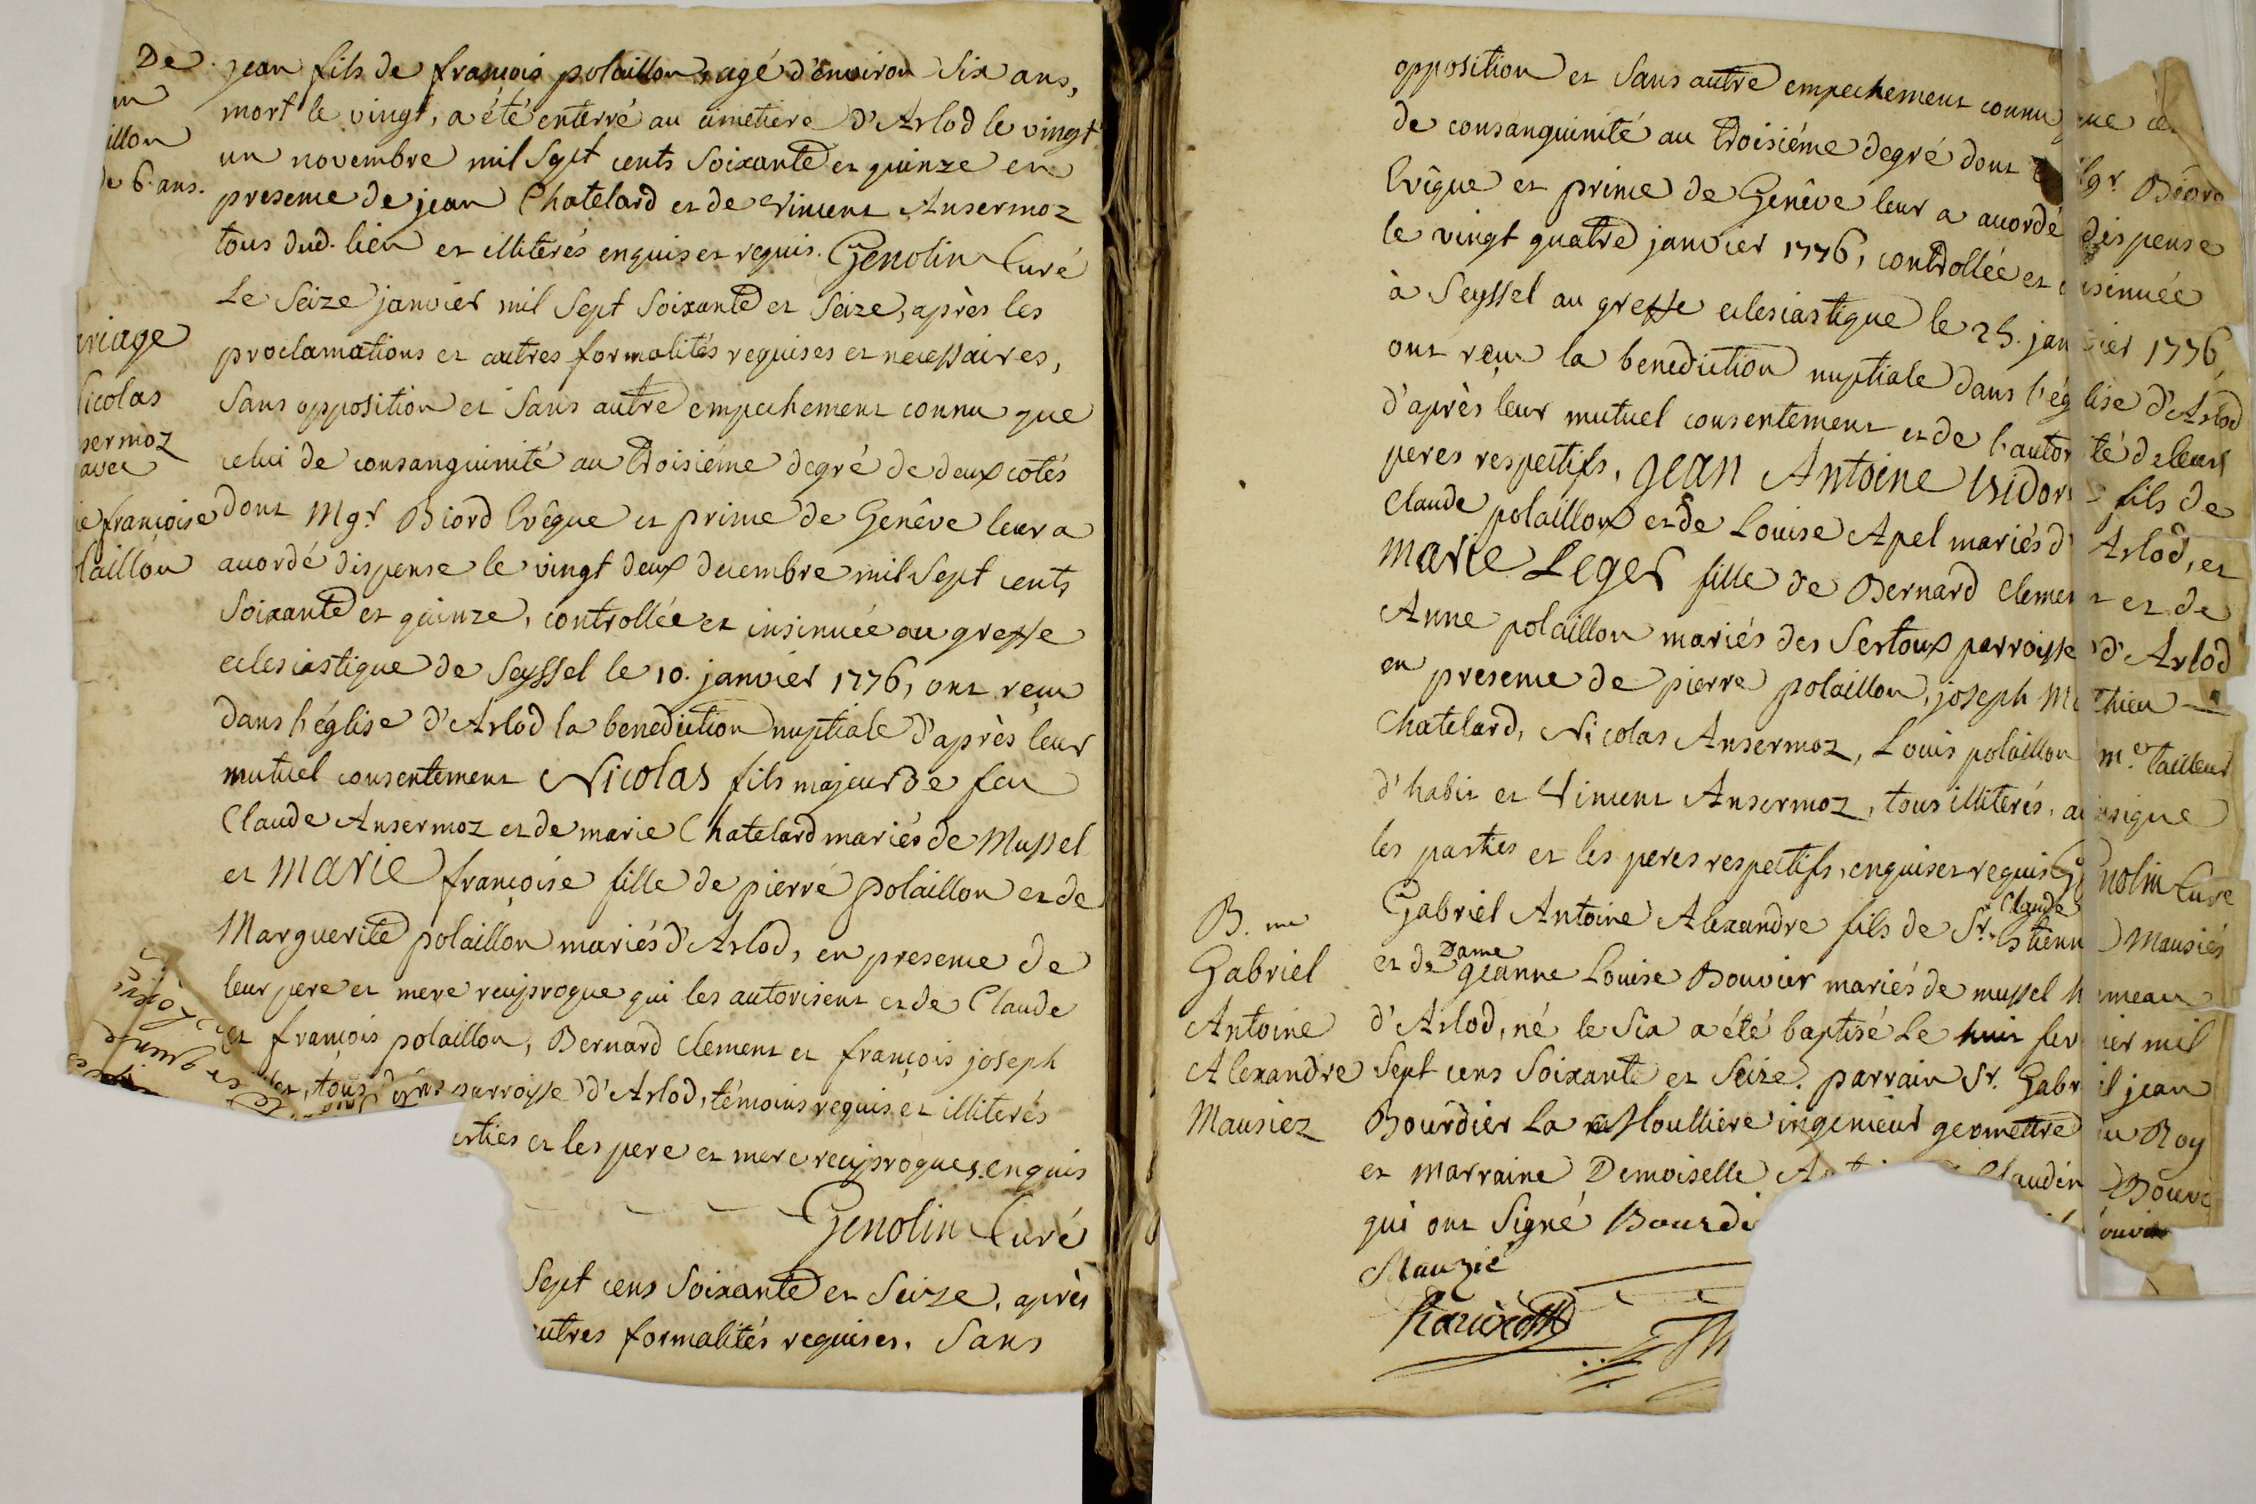 De
jean fils de françois polaillon, agé d'environ Six ans,
mort le vingt, a été enterré au cimetiere d'Arlod le vingt
illon
un novembre mil Sept cents Soixante et quinze en
de 6. ans.
presence de jean Chatelard et de Vincent Ansermoz
tous dud. lieu et illiterés enquis et requis. Genolin Curé
Le Seize janvier mil Sept Soixante et Seize, après les
ariage
proclamations et autres formalités requises et necessaires,
Nicolas
Sans opposition et Sans autre empechement connu que
sermoz
avec
celui de consanguinité au troisiéme degré de deux cotés
ie françoise
dont Mgr Biord Evêque et prince de Genêve leur a
laillon
accordé dispense le vingt deux decembre mil Sept cents
Soixante et quinze, controllée et insinuée au greffe
eclesiastique de Seyssel le 10. janvier 1776, ont reçu
dans l'église d'Arlod la benediction nuptiale d'après leur
mutuel consentement Nicolas fils majeur de feu
Claude Ansermoz et de marie Chatelard mariés de Mussel
et marie françoise fille de pierre polaillon et de
Marguerite polaillon mariés d'Arlod, en presence de
leur pere et mere reciproque qui les autorisent et de Claude
et françois polaillon, Bernard Clement et françois joseph
tous parroisse d'Arlod, témoins requis et illiterés
rties et les pere et mere reciproques enquis
Genolin Curé
Sept cens Soixante et Seize, après
autres formalités requises. Sans
opposition et Sans autre empechement connu que ce
de consanguinité au troisiéme degré dont Mgr Biord
Evêque et prince de Genêve leur a accordé dispense
le vingt quatre janvier 1776, controllée et insinuée
à Seyssel au greffe eclesiastique le 25. janvier 1776,
ont reçu la benediction nuptiale dans l'église d'Arlod
d'après leur mutuel consentement et de l'autorité de leurs
peres respectifs, jean Antoine Isidore fils de
Claude polaillon et de Louise Apel mariés d'Arlod, et
marie Leger fille de Bernard Clement et de
Anne polaillon mariés des Sertoux parroisse d'Arlod
en presence de pierre polaillon, joseph Mathieu
Chatelard, Nicolas Ansermoz, Louis polaillon me. tailleur
d'habit et Vincent Ansermoz, tous illiterés, ainsi que
les parties et les peres respectifs, enquis et requis Genolin Curé
B. me
Gabriel Antoine Alexandre fils de Sr. Claude Etienne Mausiés
Gabriel
et de Dame jeanne Louise Bouvier mariés de mussel hameau
Antoine
d'Arlod, né le Six a été baptisé le huit fevrier mil
Alexandre
Sept cens Soixante et Seize. parrain Sr. Gabriel jean
Mausiez
Bourdier La Moulliere ingenieur geomettre du Roy
et marraine Demoiselle Claudine Bouvi
qui ont Signé Bourdi
Mauzié